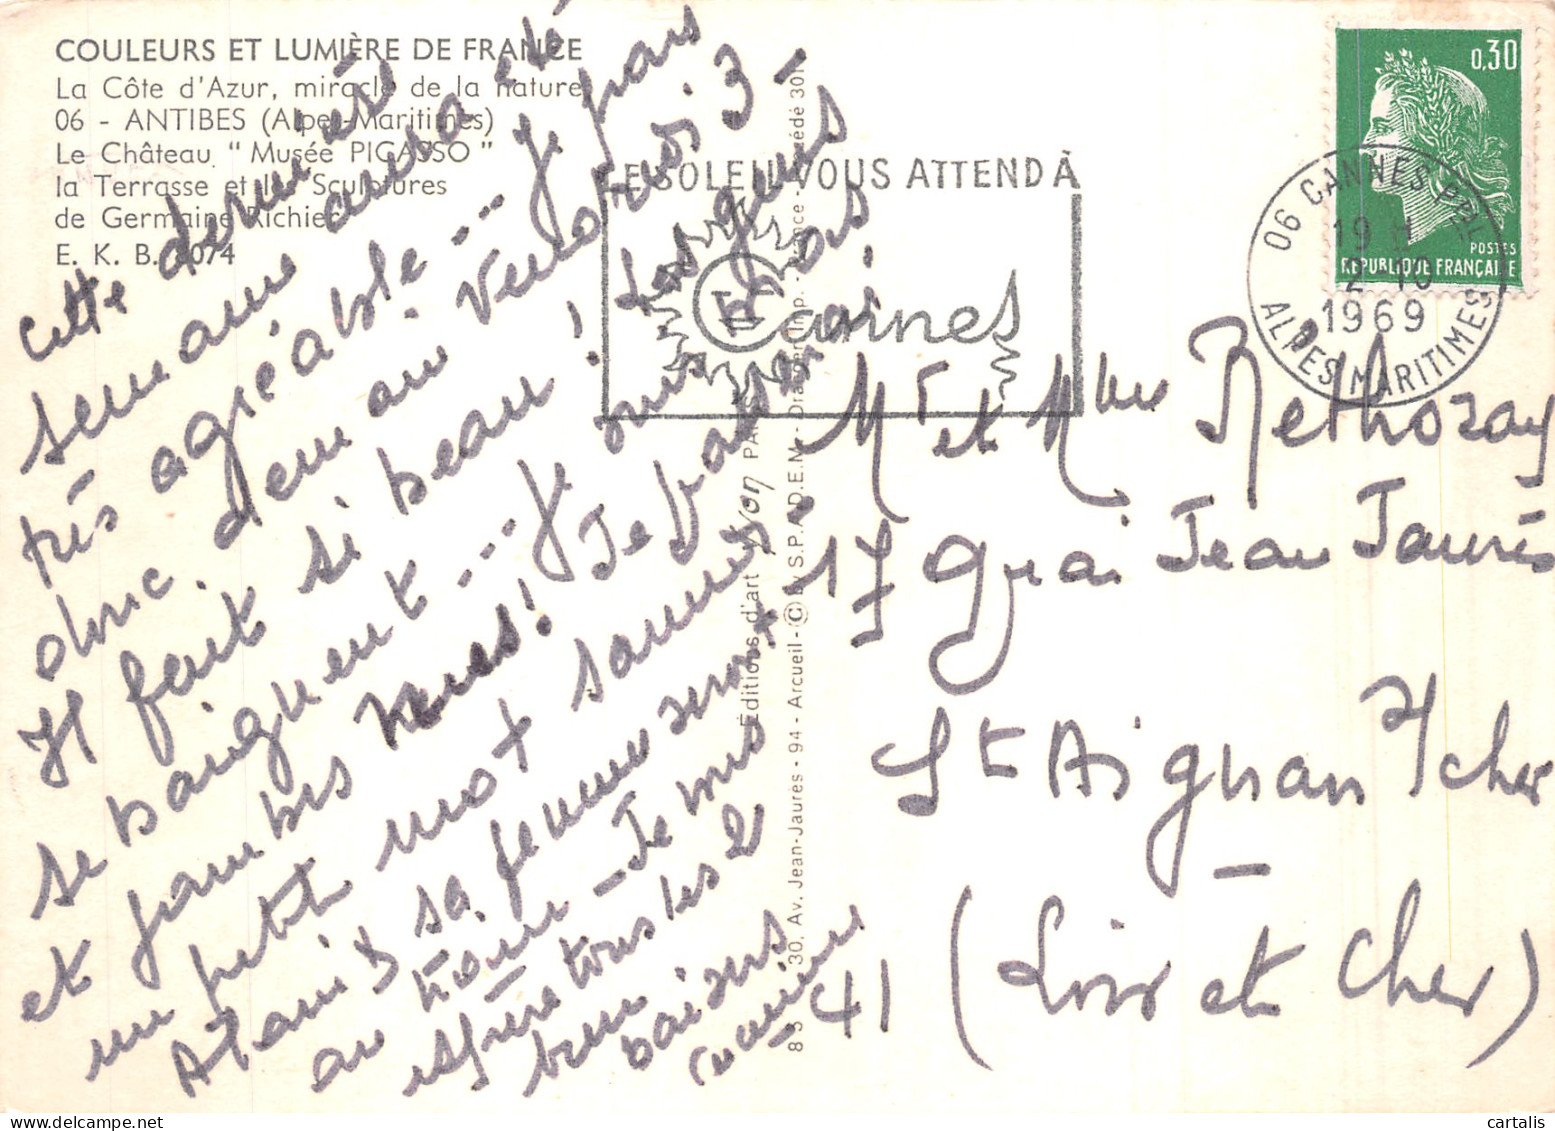 COULEURS ET LUMIÈRE DE FRANCE
La Côte d'Azur, miracle de la nature
06 - ANTIBES (Alpes-Maritimes)
Le Château "Musée PICASSO"
la Terrasse et les Sculptures
de Germaine Richier
E. K. B. 8074
LE SOLEIL VOUS ATTEND À
Cannes
0,30
POSTES
REPUBLIQUE FRANÇAISE
06 CANNES PPAL
19 H
2-10
1969
ALPES MARITIMES
Cette dernière
semaine aura été
très agréable... Je pars
donc demain vendredi 3 -
Il fait si beau ! Les gens
se baignent... Je suis bras
et jambes nues! Je passerai
un petit mot samedi
Alain & sa femme seront
au - Je vous
espère tous les 2
bien
baisers
Éditions d'art Yvon PARIS
30, Av. Jean-Jaurès - 94 - Arcueil - © by S.P.A.D.E.M.
Mr et Mme Rethoray
17 Quai Jean Jaurès
St Aignan s/cher
41 (Loir et Cher)
cartalis